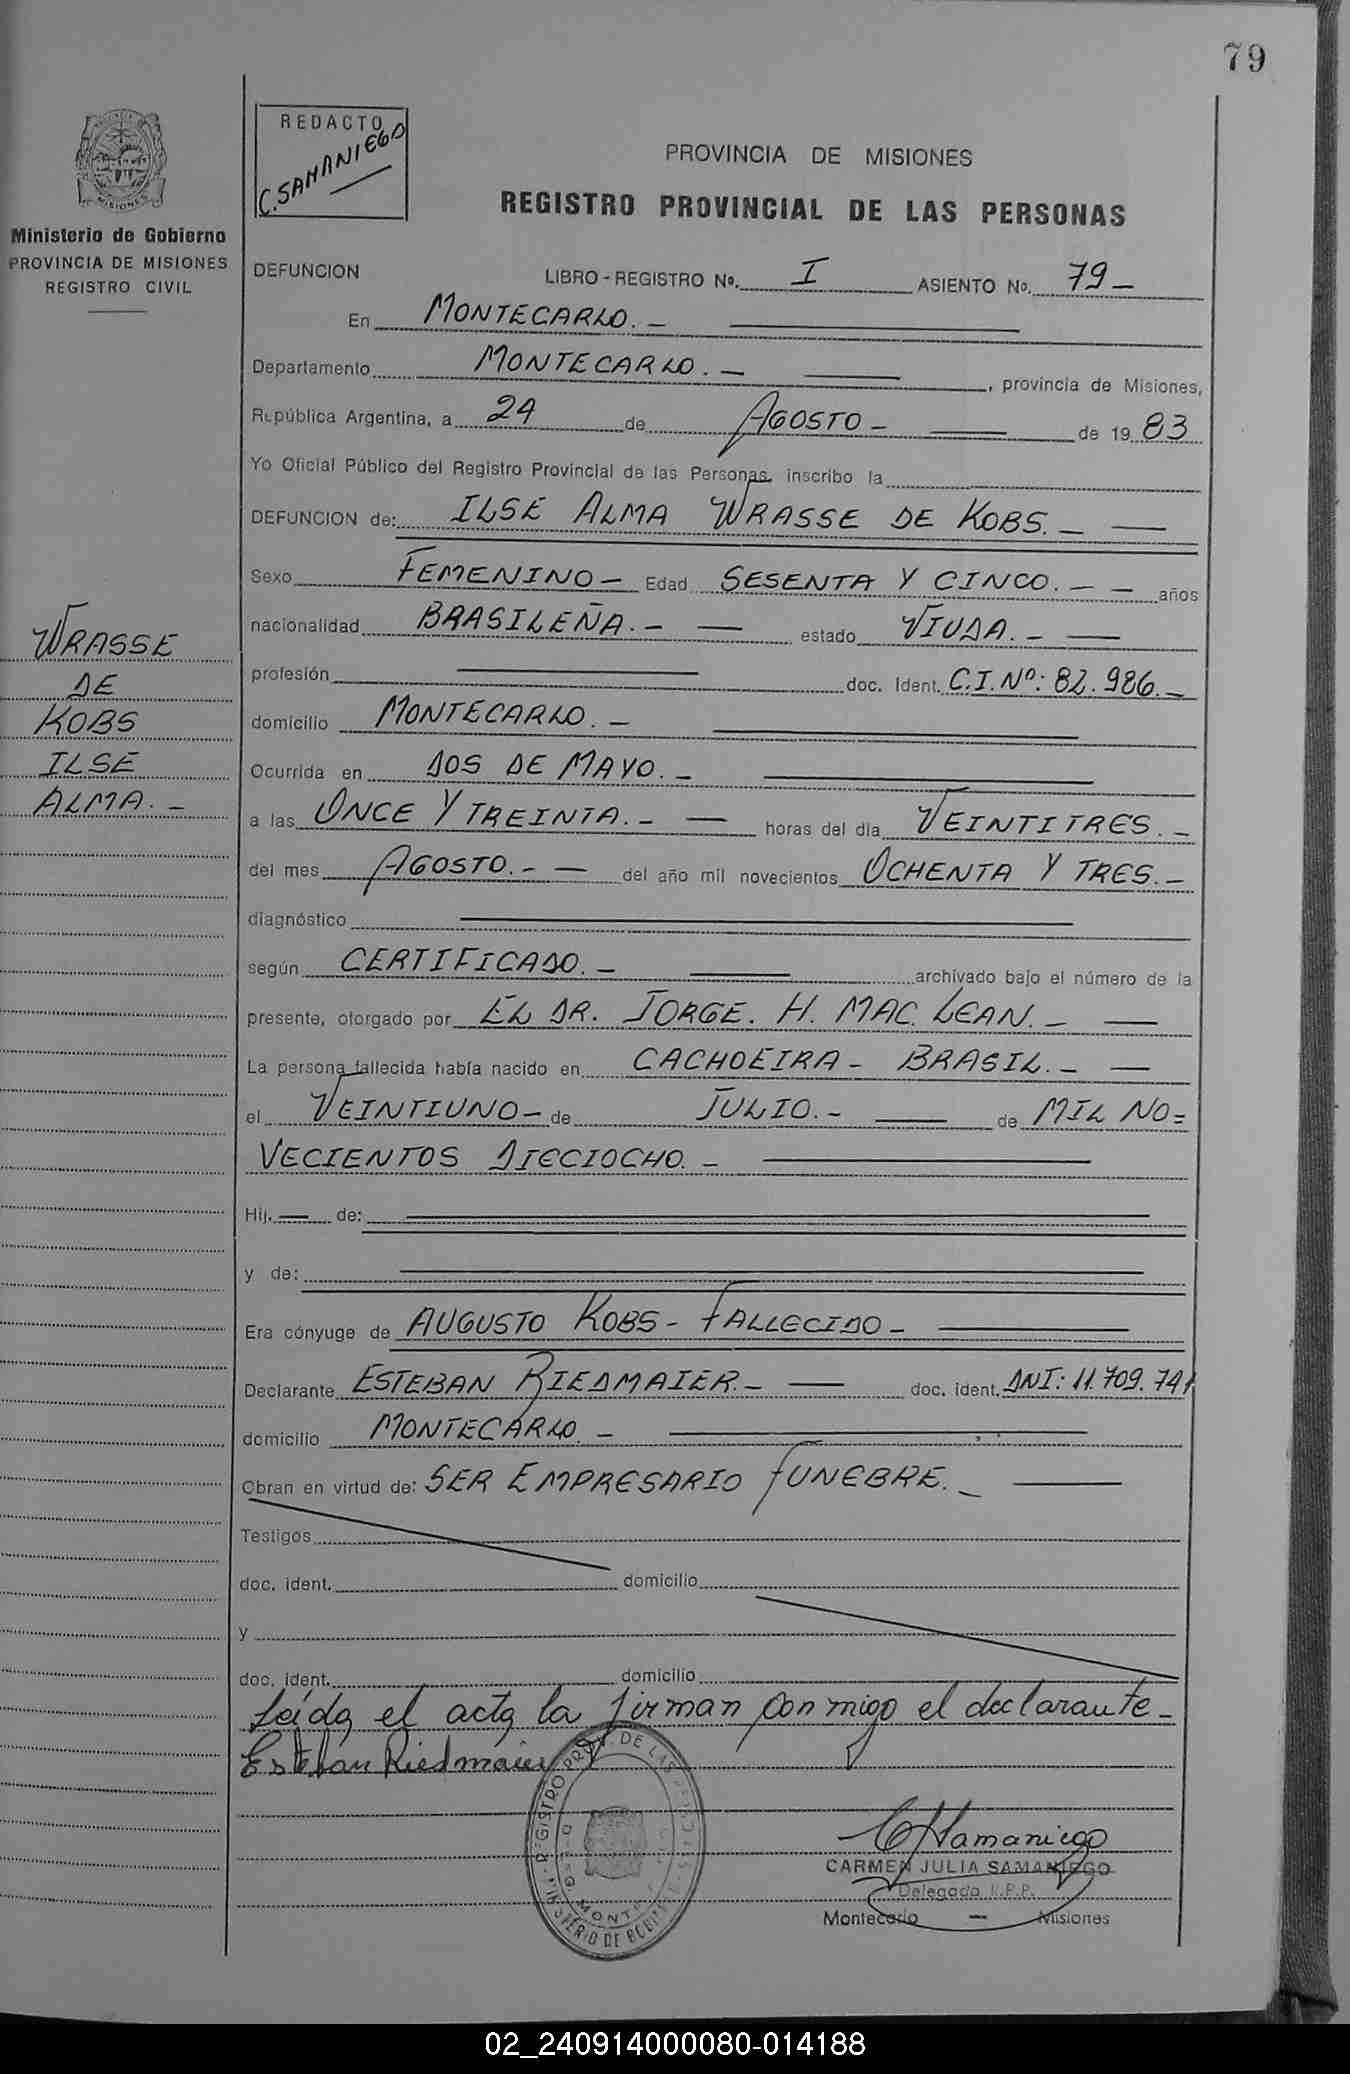 79
REDACTO
C. SAMANIEGO
MISIONES
Ministerio de Gobierno
PROVINCIA DE MISIONES
REGISTRO CIVIL
PROVINCIA DE MISIONES
REGISTRO PROVINCIAL DE LAS PERSONAS
DEFUNCION LIBRO - REGISTRO Nº. I ASIENTO Nº. 79 -
En MONTECARLO. -
Departamento MONTECARLO. - , provincia de Misiones,
República Argentina, a 24 de AGOSTO - de 19 83
Yo Oficial Público del Registro Provincial de las Personas, inscribo la
DEFUNCION de: ILSE ALMA WRASSE DE KOBS. -
Sexo FEMENINO - Edad SESENTA Y CINCO. - - años
nacionalidad BRASILEÑA. - estado VIUDA. -
profesión doc. Ident. C.I. Nº: 82.986. -
domicilio MONTECARLO. -
Ocurrida en DOS DE MAYO. -
a las ONCE Y TREINTA. - horas del día VEINTITRES. -
del mes AGOSTO. - - del año mil novecientos OCHENTA Y TRES. -
diagnóstico
según CERTIFICADO. - archivado bajo el número de la
presente, otorgado por EL DR. JORGE. H. MAC. LEAN. -
La persona fallecida había nacido en CACHOEIRA - BRASIL. -
el VEINTIUNO - de JULIO. - de MIL NO=
VECIENTOS DIECIOCHO. -
Hij. de:
y de:
Era cónyuge de AUGUSTO KOBS - FALLECIDO -
Declarante ESTEBAN RIEDMAIER. - doc. ident. DNI: 11.709.741
domicilio MONTECARLO. -
Obran en virtud de: SER EMPRESARIO FUNEBRE. -
Testigos
doc. ident. domicilio
y
doc. ident. domicilio
Leída el acta la firman conmigo el declarante -
Esteban Riedmaier
WRASSE
DE
KOBS
ILSE
ALMA. -
REGISTRO PROV. DE LAS
MINISTERIO DE
CSamaniego
CARMEN JULIA SAMANIEGO
Delegada R.P.P.
Montecarlo - Misiones
02_240914000080-014188